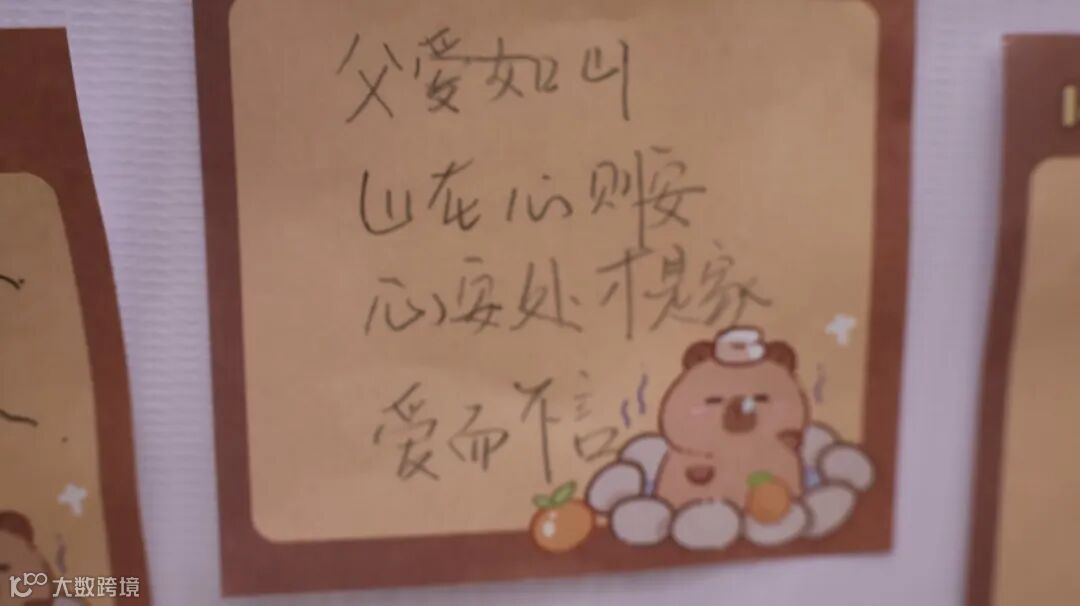 父爱如山
山在心则安
心安处才是家
爱而不言
大数跨境